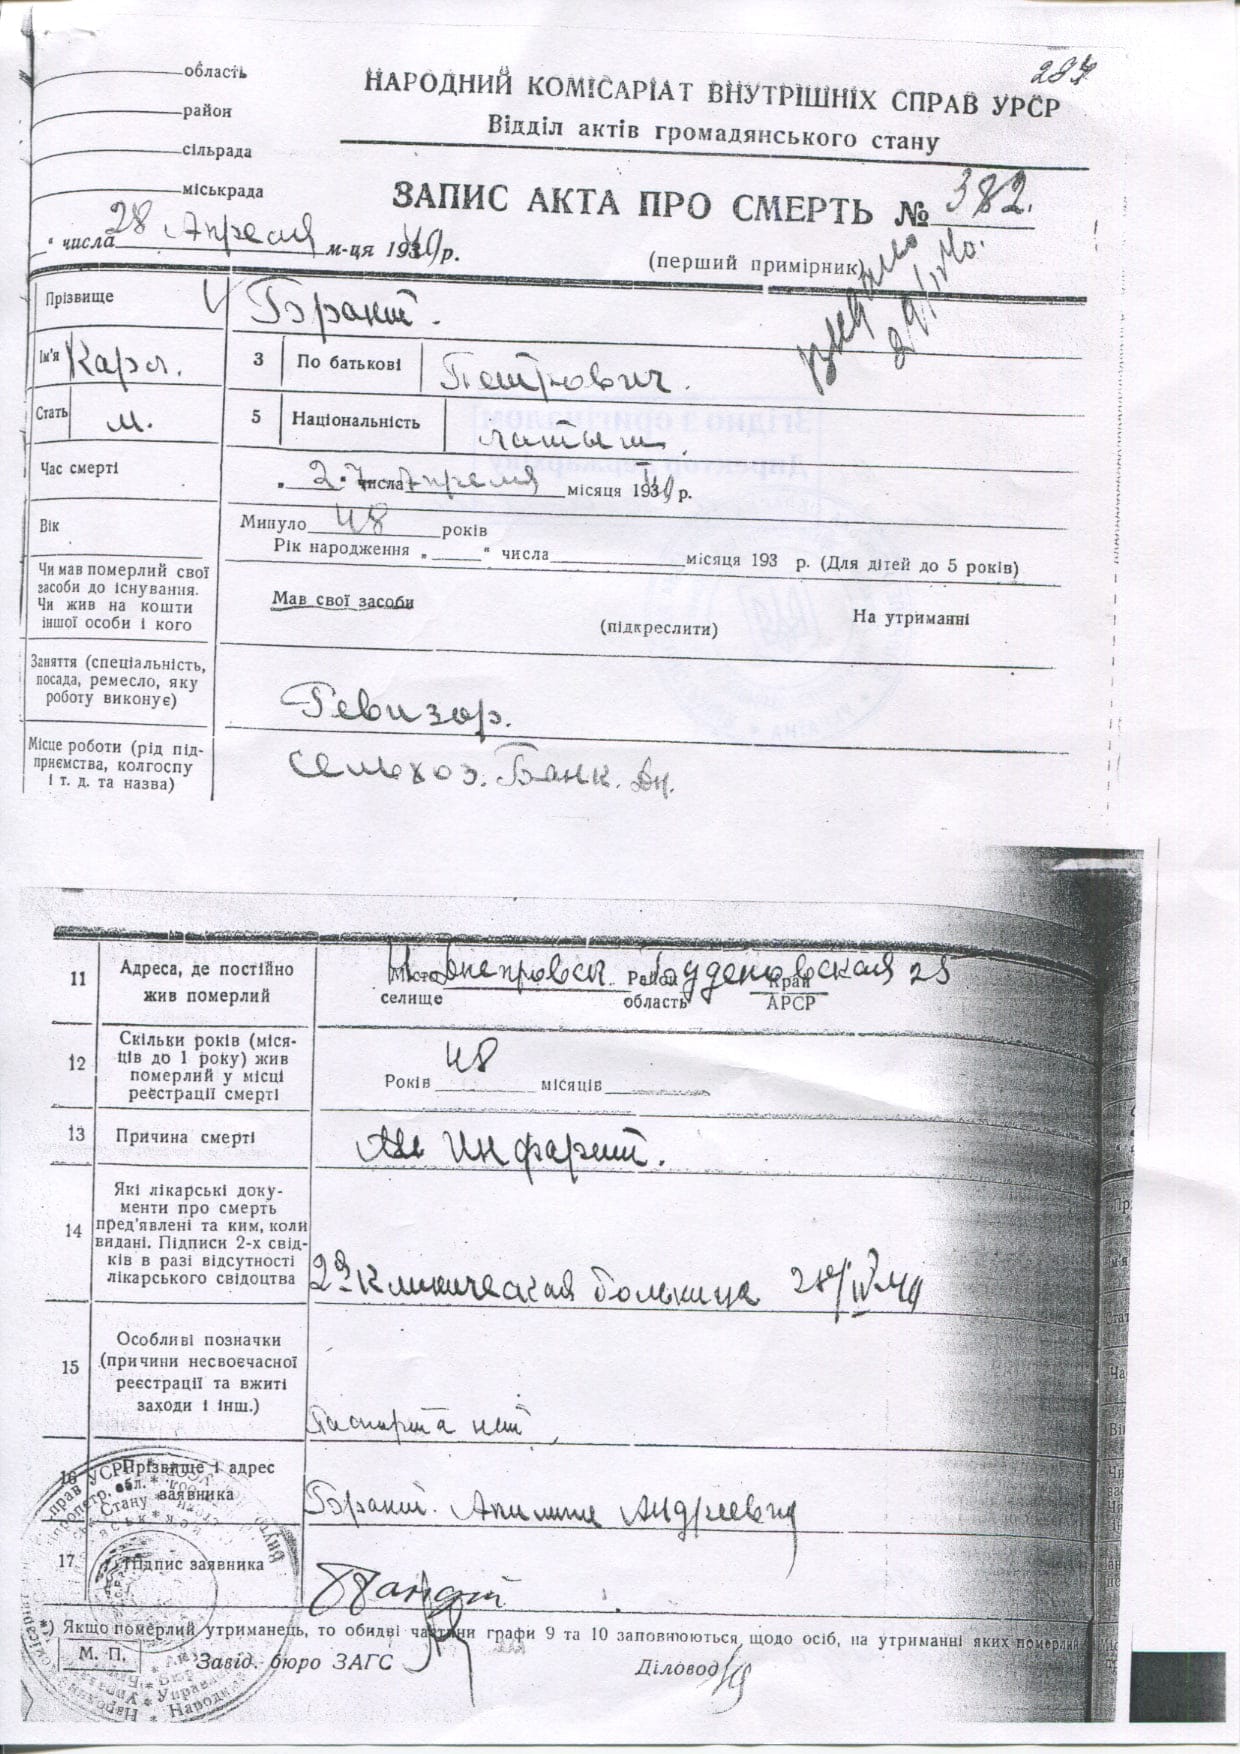 287
область
район
сільрада
міськрада
НАРОДНИЙ КОМІСАРІАТ ВНУТРІШНІХ СПРАВ УРСР
Відділ актів громадянського стану
ЗАПИС АКТА ПРО СМЕРТЬ № 382.
28 числа Апреля м-ця 1940 р.
(перший примірник)
Прізвище
Ім'я Карл.
3 По батькові Петрович.
Стать м.
5 Національність латыш.
Час смерті „ 27 числа Апреля місяця 1940 р.
Вік Минуло 48 років
Рік народження „ “ числа місяця 193 р. (Для дітей до 5 років)
Чи мав померлий свої
засоби до існування.
Чи жив на кошти
іншої особи і кого
Мав свої засоби (підкреслити) На утриманні
Заняття (спеціальність,
посада, ремесло, яку
роботу виконує)
Ревизор.
Місце роботи (рід під-
приємства, колгоспу
і т. д. та назва)
Сельхоз. Банк. Дн.
11 Адреса, де постійно
жив померлий
Місто Днепровск Район Буденовская 25 Край
селище область АРСР
12 Скільки років (міся-
ців до 1 року) жив
померлий у місці
реєстрації смерті
Років 48 місяців
13 Причина смерті Инфаркт.
14 Які лікарські доку-
менти про смерть
пред'явлені та ким, коли
видані. Підписи 2-х свід-
ків в разі відсутності
лікарського свідоцтва
2я Клиническая больница 28/IV-40
15 Особливі позначки
(причини несвоєчасної
реєстрації та вжиті
заходи і інш.)
Паспорта нет
16 Прізвище і адрес
заявника
Андреевна
17 Підпис заявника
*) Якщо померлий утриманець, то обидві частини графи 9 та 10 заповнюються щодо осіб, на утриманні яких померлий
М. П.
Завід. бюро ЗАГС Діловод